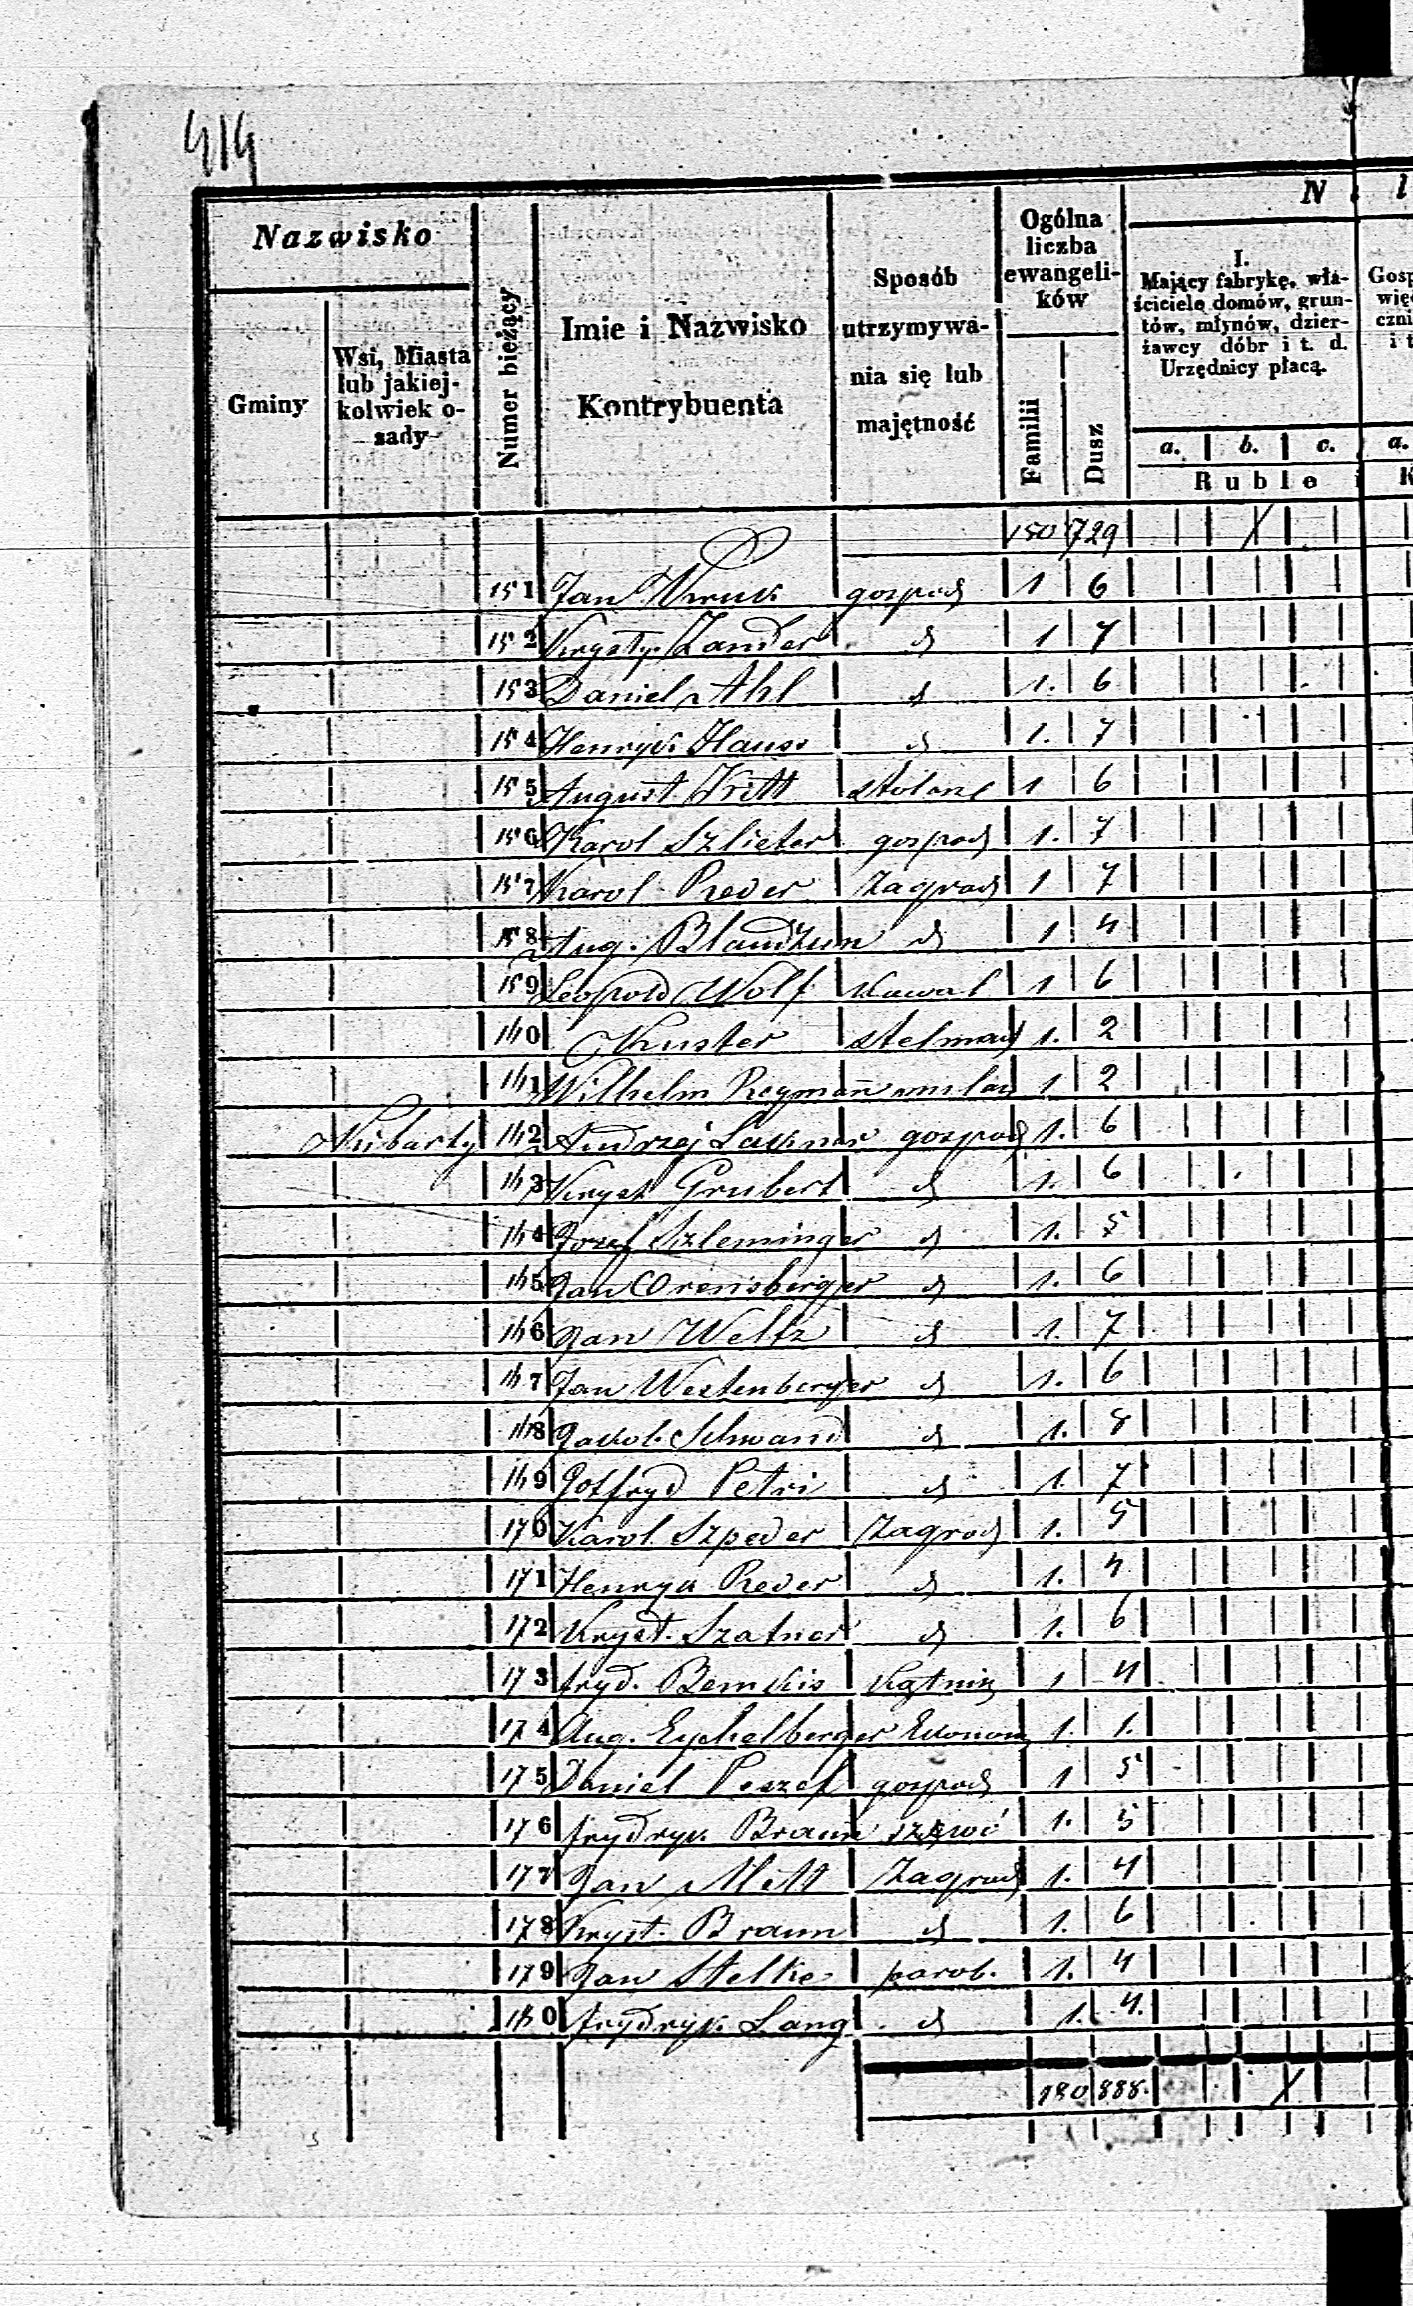 414
Nazwisko
Gminy
Wsi, Miasta
lub jakiej-
kolwiek o-
sady
Numer bieżący
Imie i Nazwisko
Kontrybuenta
Sposób
utrzymywa-
nia się lub
majętność
Ogólna
liczba
ewangeli-
ków
Familii
Dusz
N l
I.
Mający fabrykę, wła-
ściciele domów, grun-
tów, młynów, dzier-
żawcy dóbr i t. d.
Urzędnicy płacą.
a. b. c.
Ruble i
Gosp
wię
czni
i t
a.
K
150 729
151 Jan Kruk gospod 1 6
152 Krysty. Zander d 1 7
153 Daniel Ahl d 1. 6
154 Henryk Haus d 1. 7
155 August Kritt stolarz 1 6
156 Karol Szlieter gospod 1. 7
157 Karol Reder Zagrod 1 7
158 Aug. Blaudzun d 1 4
159 Leopold Wolf Kowal 1 6
160 Kuster stelmach 1. 2
161 Wilhelm Reyman 1 2
Kibarty 162 Andrzej Lakner gospod 1. 6
163 Kryst Grubert d 1. 6
164 Jozef Szleminger d 1. 5
165 Jan Orensberger d 1. 6
166 Jan Weltz d 1. 7
167 Jan Westenberger d 1. 6
168 Jakob Schwand d 1. 8
169 Gotfryd Petri d 1. 7
170 Karol Szpeder Zagrod 1. 5
171 Henryk Reder d 1. 4
172 Kryst. Szatner d 1. 6
173 fryd. Bemkis Kątnik 1 4
174 Aug. Eychelberger Ekonom 1. 1.
175 Daniel Peszel gospod 1 5
176 frydryk Braun szewc 1. 5
177 Jan Mett Zagrod 1. 4
178 Kryst. Braun d 1. 6
179 Jan Stelke parob. 1. 4
180 frydryk Lang d 1. 4.
180 888.